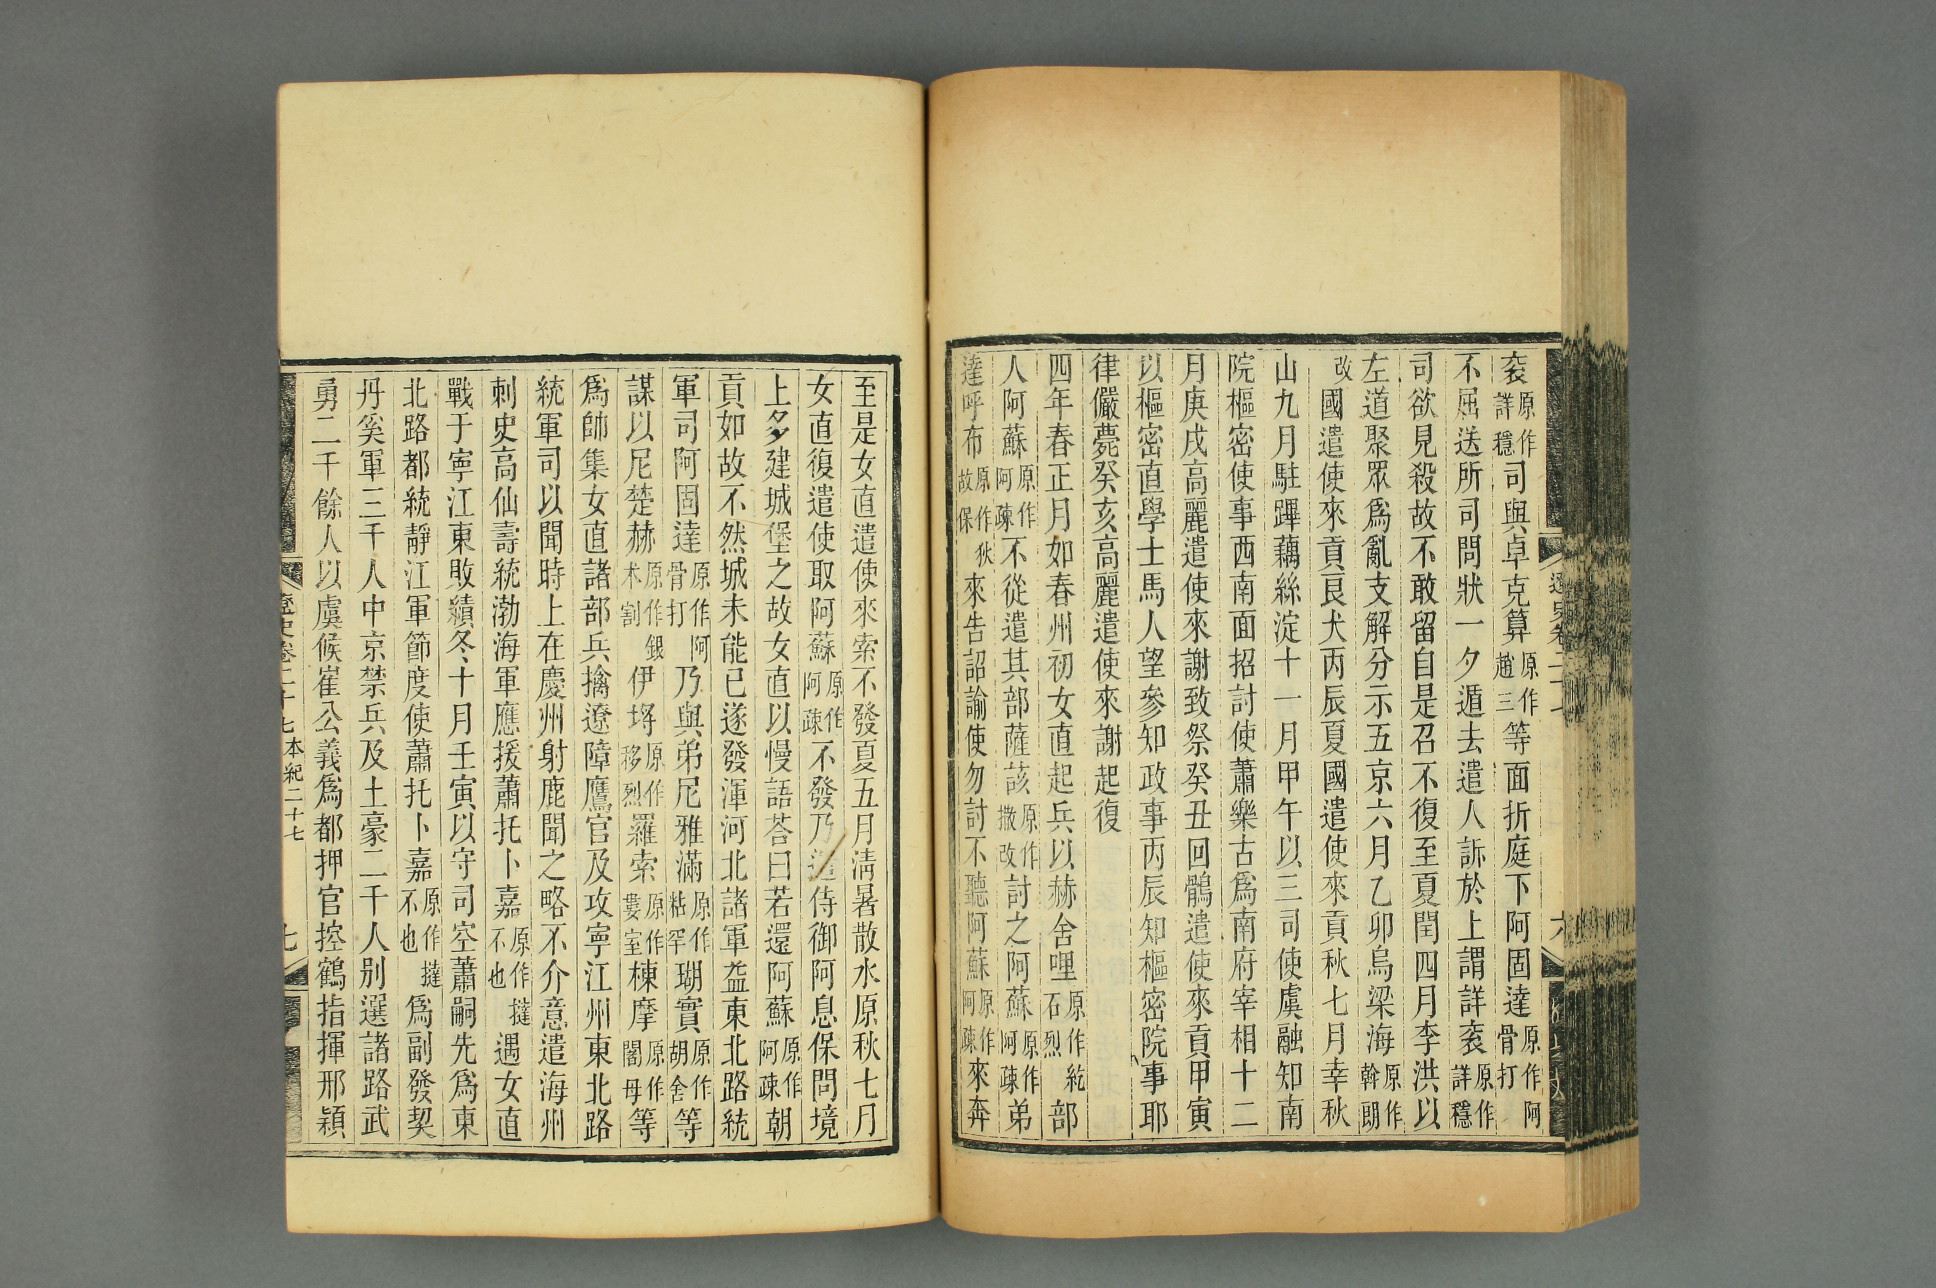 袞原作詳穩司與卓克算原作趙三等面折庭下阿固達原作阿骨打
不屈送所司問狀一夕遁去遣人訴於上謂詳袞原作詳穩
司欲見殺故不敢留自是召不復至夏閏四月李洪以
左道聚眾爲亂支解分示五京六月乙卯烏梁海原作斡朗
改國遣使來貢良犬丙辰夏國遣使來貢秋七月幸秋
山九月駐蹕藕絲淀十一月甲午以三司使虞融知南
院樞密使事西南面招討使蕭樂古爲南府宰相十二
月庚戌高麗遣使來謝致祭癸丑回鶻遣使來貢甲寅
以樞密直學士馬人望參知政事丙辰知樞密院事耶
律儼薨癸亥高麗遣使來謝起復
四年春正月如春州初女直起兵以赫舍哩原作紇石烈部
人阿蘇原作阿疎不從遣其部薩該原作撒改討之阿蘇原作阿疎弟
達呼布原作狄故保來告詔諭使勿討不聽阿蘇原作阿疎來奔
遼史卷二十七
六
至是女直遣使來索不發夏五月淸暑散水原秋七月
女直復遣使取阿蘇原作阿疎不發乃遣侍御阿息保問境
上多建城堡之故女直以慢語荅曰若還阿蘇原作阿疎朝
貢如故不然城未能已遂發渾河北諸軍益東北路統
軍司阿固達原作阿骨打乃與弟尼雅滿原作粘罕瑚實原作胡舍等
謀以尼楚赫原作銀术割伊埒原作移烈羅索原作婁室棟摩原作闍母等
爲帥集女直諸部兵擒遼障鷹官及攻寧江州東北路
統軍司以聞時上在慶州射鹿聞之略不介意遣海州
刺史高仙壽統渤海軍應援蕭托卜嘉原作撻不也遇女直
戰于寧江東敗績冬十月壬寅以守司空蕭嗣先爲東
北路都統靜江軍節度使蕭托卜嘉原作撻不也爲副發契
丹奚軍三千人中京禁兵及土豪二千人别選諸路武
勇二千餘人以虞候崔公義爲都押官控鶴指揮邢穎
遼史卷二十七 本紀二十七
七